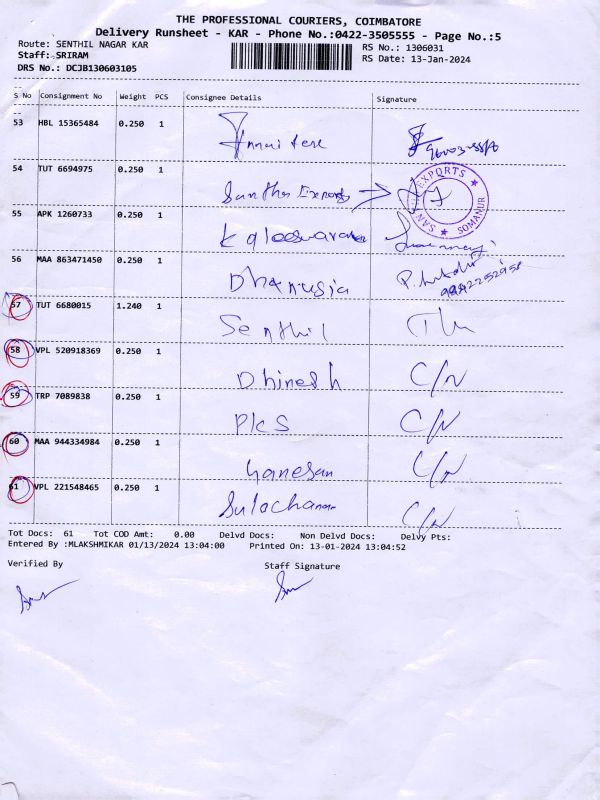 THE PROFESSIONAL COURIERS, COIMBATORE
Delivery Runsheet - KAR - Phone No.:0422-3505555 - Page No.:5
Route: SENTHIL NAGAR KAR
RS No.: 1306031
Staff: SRIRAM
RS Date: 13-Jan-2024
DRS No.: DCJB130603105
S No Consignment No Weight PCS Consignee Details Signature
53 HBL 15365484 0.250 1
54 TUT 6694975 0.250 1 Santha Exports
SAN EXPORTS SOMANUR
55 APK 1260733 0.250 1
56 MAA 863471450 0.250 1 Dhanusia
9442252958
57 TUT 6680015 1.240 1 Senthil
58 VPL 520918369 0.250 1 Dhinesh C/N
59 TRP 7089838 0.250 1 PKS C/N
60 MAA 944334984 0.250 1 Ganesan C/N
61 VPL 221548465 0.250 1 C/N
Tot Docs: 61 Tot COD Amt: 0.00 Delvd Docs: Non Delvd Docs: Delvy Pts:
Entered By :MLAKSHMIKAR 01/13/2024 13:04:00 Printed On: 13-01-2024 13:04:52
Verified By Staff Signature